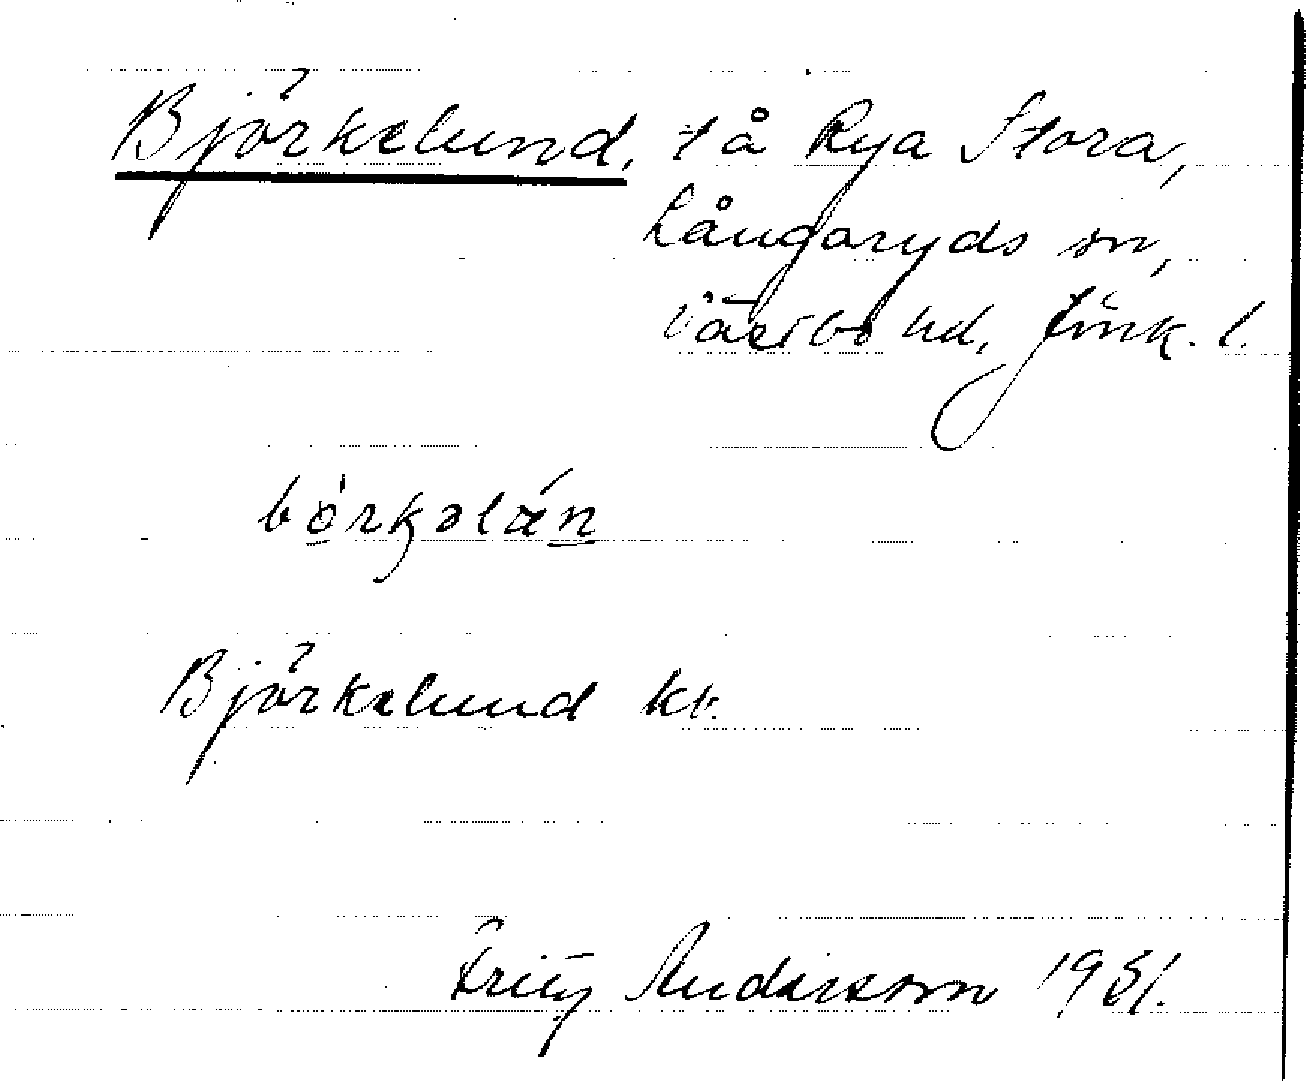 Björkelund, t å Rya Stora,
Långaryds sn,
Västbo hd, Jönk. l.
börkəlán
Björkelund kt.
Fritz Andersson 1931.